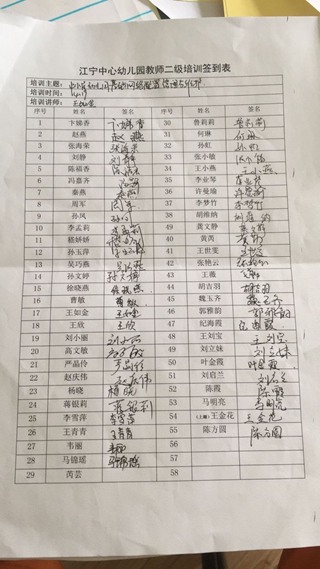 江宁中心幼儿园教师二级培训签到表
培训主题:
培训时间:
培训讲师: 王如金
序号 姓名 签名 序号 姓名 签名
1 卞娣香 卞娣香 30 鲁莉莉 鲁莉莉
2 赵燕 赵燕 31 何琳 何琳
3 张海荣 张海荣 32 孙虹 孙虹
4 刘静 刘静 33 张小敏 张小敏
5 陈福香 34 王小燕 王小燕
6 冯嘉齐 35 李业琴
7 秦燕 36 许曼瑜 许曼瑜
8 周军 周军 37 李梦竹 李梦竹
9 孙凤 孙凤 38 胡维纳
10 李孟莉 李孟莉 40 龚文静 龚文静
11 嵇娇娇 39 黄芮 黄芮
12 孙玉萍 孙玉萍 41 王世雯 王世雯
13 吴巧燕 吴巧燕 42 张艳云
14 孙文婷 43 王薇 王薇
15 徐晓燕 徐晓燕 44 胡吉羽 胡吉羽
16 曹敏 曹敏 45 魏玉齐 魏玉齐
17 王如金 王如金 46 郭雅韵 郭雅韵
18 王欣 王欣 47 纪海霞 纪海霞
19 刘小丽 刘小丽 48 王刘宝 王刘宝
20 高文敏 高文敏 49 刘立妹 刘立妹
21 严品伶 严品伶 50 叶金霞 叶金霞
22 赵庆伟 赵庆伟 51 刘启兰 刘启兰
23 杨晓 杨晓 52 陈霞 陈霞
24 蒋银莉 蒋银莉 53 马明亮 马明亮
25 李雪萍 李雪萍 54 王金花 王金花
26 王青青 王青青 55 陈方圆 陈方圆
27 韦丽 韦丽 57
28 马锦瑶 马锦瑶 56
29 芮芸 58